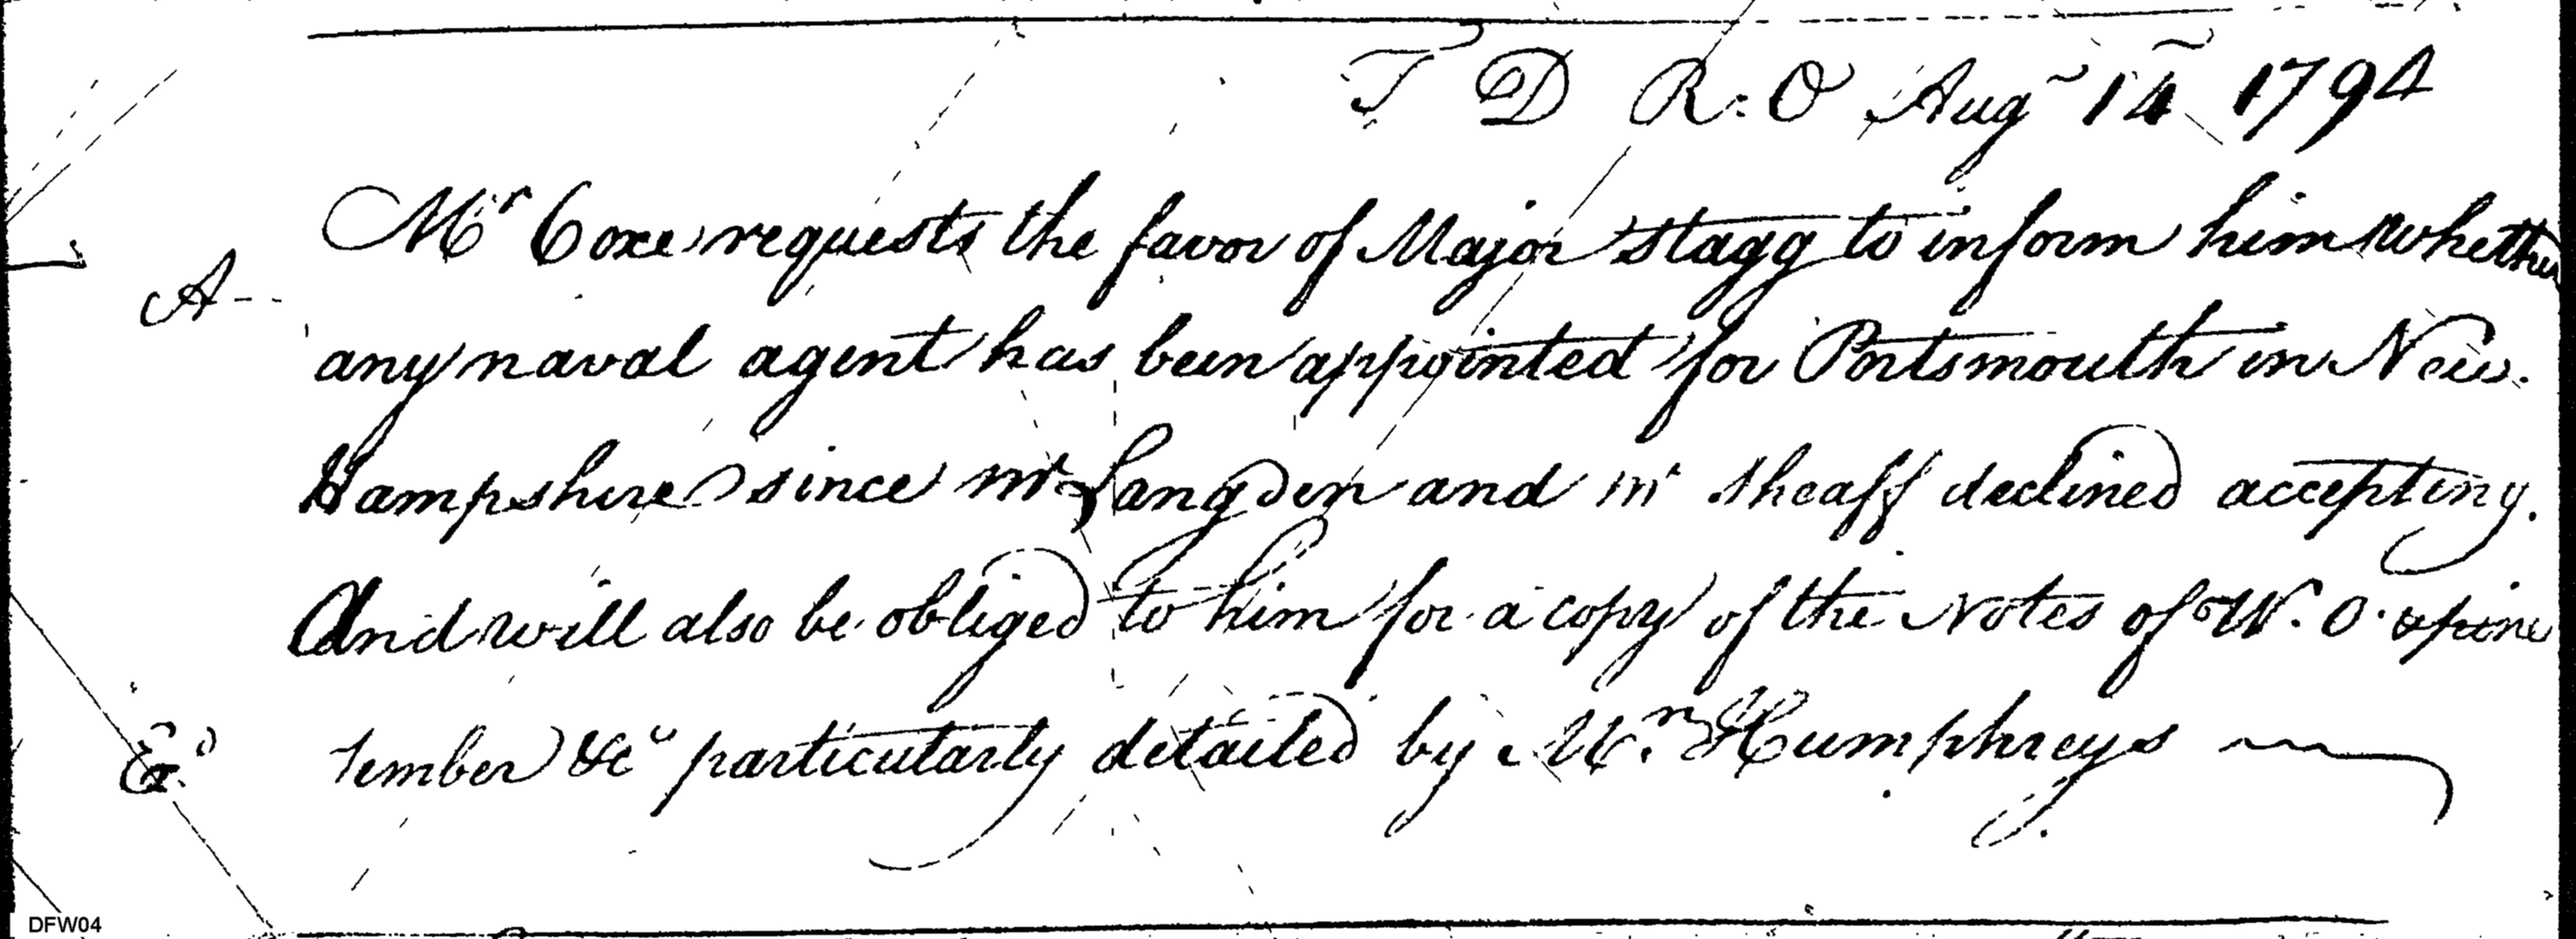 T D R: O Augt 14 1794
Mr Coxe requests the favor of Major Stagg to inform him whether
A--
any naval agent has been appointed for Portsmouth in New.
Hampshire since mr Langdon and mr Sheaff declined accepting.
And will also be obliged to him for a copy of the Notes of W. O. & pine
Exd
Timber &c particularly detailed by Mr. Humphreys
DFW04